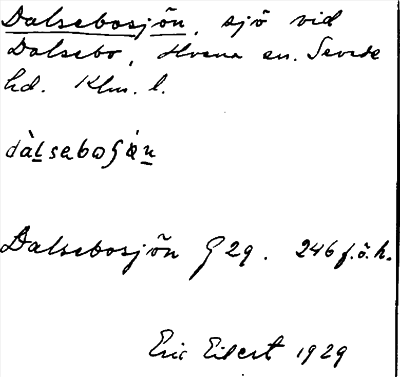 Dalsebosjön, sjö vid
Dalsebo, Hvena sn. Sevede
hd. Klm. l.
dàlseboʃön
Dalsebosjön G 29. 246 f.ö.h.
Eric Eilert 1929